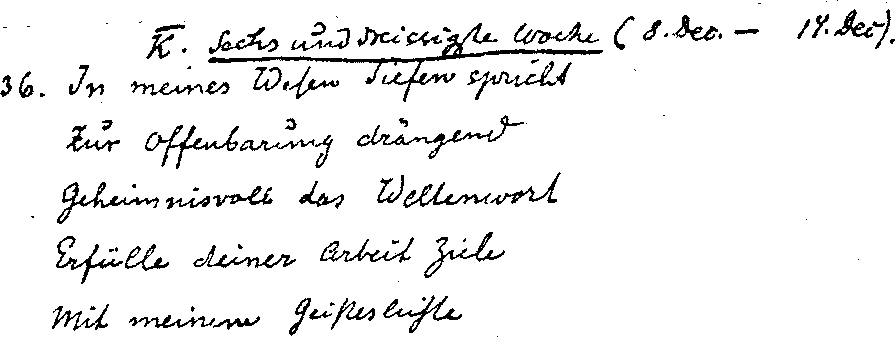 K. Sechs und dreissigste Woche (8. Dec. — 14. Dec).
36. In meines Wesens Tiefen spricht
Zur Offenbarung drängend
Geheimnisvoll das Weltenwort
Erfülle deiner Arbeit Ziele
Mit meinem Geisteslichte